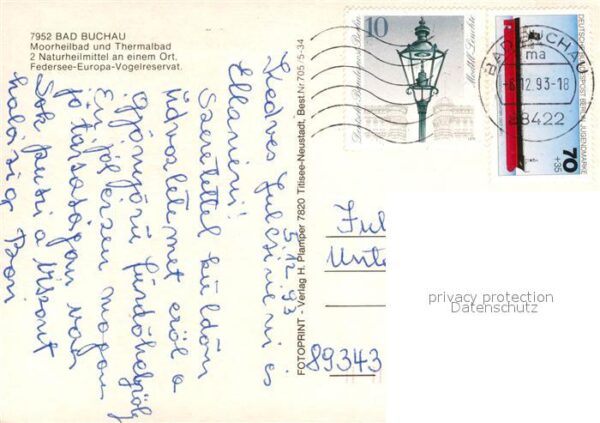 7952 BAD BUCHAU
Moorheilbad und Thermalbad
2 Naturheilmittel an einem Ort.
Federsee-Europa-Vogelreservat.
5.12.93
Kedves Julcsi néni és
Ella néni!
Szeretettel küldöm
üdvözletemet erről a
Gyönyörű fürdőhelyről
Én jól érzem magam
jó társaságom van
Sok puszi a viszont
FOTOPRINT - Verlag H. Plamper 7820 Titisee-Neustadt, Best.Nr 705/5-34
10
Deutsche Bundespost Berlin
Modell-Leuchte
DEUTSCHE BUNDESPOST BERLIN JUGENDMARKE
70
+35
BAD BUCHAU
ma
-6.12.93-18
88422
89343
privacy protection
Datenschutz